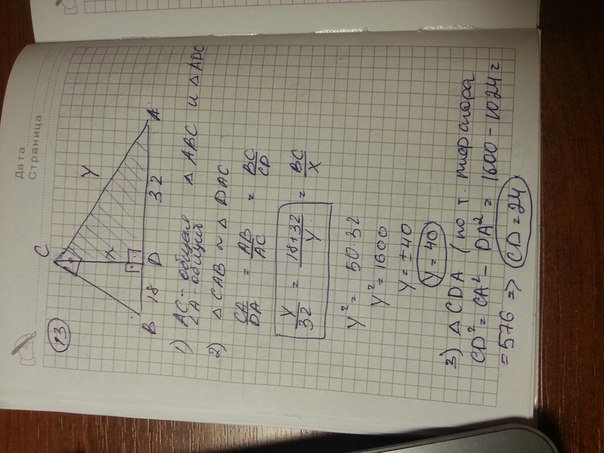 Дата
Страница
13
C
Y
X
B 18 D 32 A
1) AC - общая
∠A - общий
△ ABC и △ ADC
2) △ CAB ~ △ DAC
CA/DA = AB/AC = BC/CD
Y/32 = 18+32/Y = BC/X
Y² = 50·32
Y² = 1600
Y = ±40
Y = 40
3) △ CDA (по т. Пифагора
CD² = CA² - DA² = 1600 - 1024 =
= 576 ⇒ CD = 24